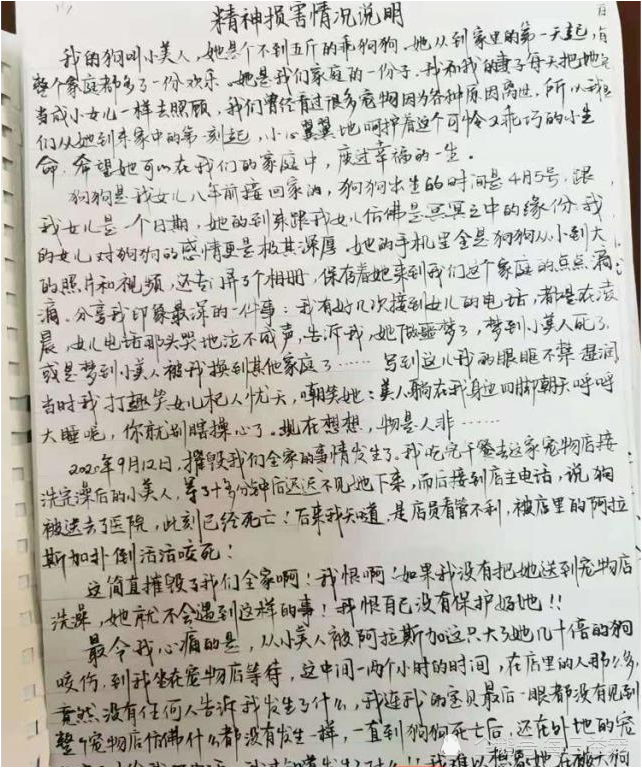 精神损害情况说明
我的狗叫小美人，她是个不到五斤的乖狗狗。她从到家里的第一天起，
整个家庭都多了一份欢乐。她是我们家庭的一份子。我和我的妻子每天把她
当成小女儿一样去照顾，我们曾经看过很多宠物因为各种原因离世，所以
们从她到来家中的第一刻起，小心翼翼地呵护着这个可怜又乖巧的小生
命，希望她可以在我们的家庭中，度过幸福的一生。
狗狗是我女儿八年前接回家的，狗狗出生的时间是4月5号，跟
我女儿是一个日期，她的到来跟我女儿仿佛是冥冥之中的缘份。我
的女儿对狗狗的感情更是极其深厚。她的手机里全是狗狗从小到大
的照片和视频，还专门弄了个相册，保存着她来到我们这个家庭的点点滴
滴。分享我印象最深的一件事：我有好几次接到女儿的电话，都是在凌
晨，女儿电话那头哭地泣不成声，告诉我，她做噩梦了，梦到小美人死了，
或是梦到小美人被我换到其他家庭了……写到这儿我的眼眶不禁湿润，
当时我打趣笑女儿杞人忧天，嘲笑她：美人躺在我身边四脚朝天呼呼
大睡呢，你就别瞎操心了。现在想想，物是人非……
2020年9月12日，摧毁我们全家的事情发生了。我吃完午餐去这家宠物店接
洗完澡后的小美人，等了十多分钟后迟迟不见她下来，而后接到店主电话，说狗
被送去了医院，此刻已经死亡！后来我知道，是店员看管不利，被店里的阿拉
斯加扑倒活活咬死！
这简直摧毁了我们全家啊！我恨啊！如果我没有把她送到宠物店
洗澡，她就不会遇到这样的事！我恨自己没有保护好她！！
最令我心痛的是，从小美人被阿拉斯加这只大了她几十倍的狗
咬伤，到我坐在宠物店等待，这中间一两个小时的时间，在店里的人那么多，
竟然没有任何人告诉我发生了什么，我连我的宝贝最后一眼都没有见到
整个宠物店仿佛什么都没有发生一样，一直到狗狗死亡后，还在外地的宠